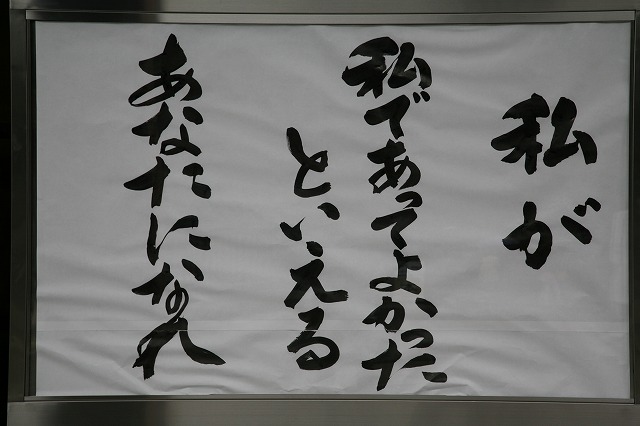 私が
私であってよかった
といえる
あなたになれ